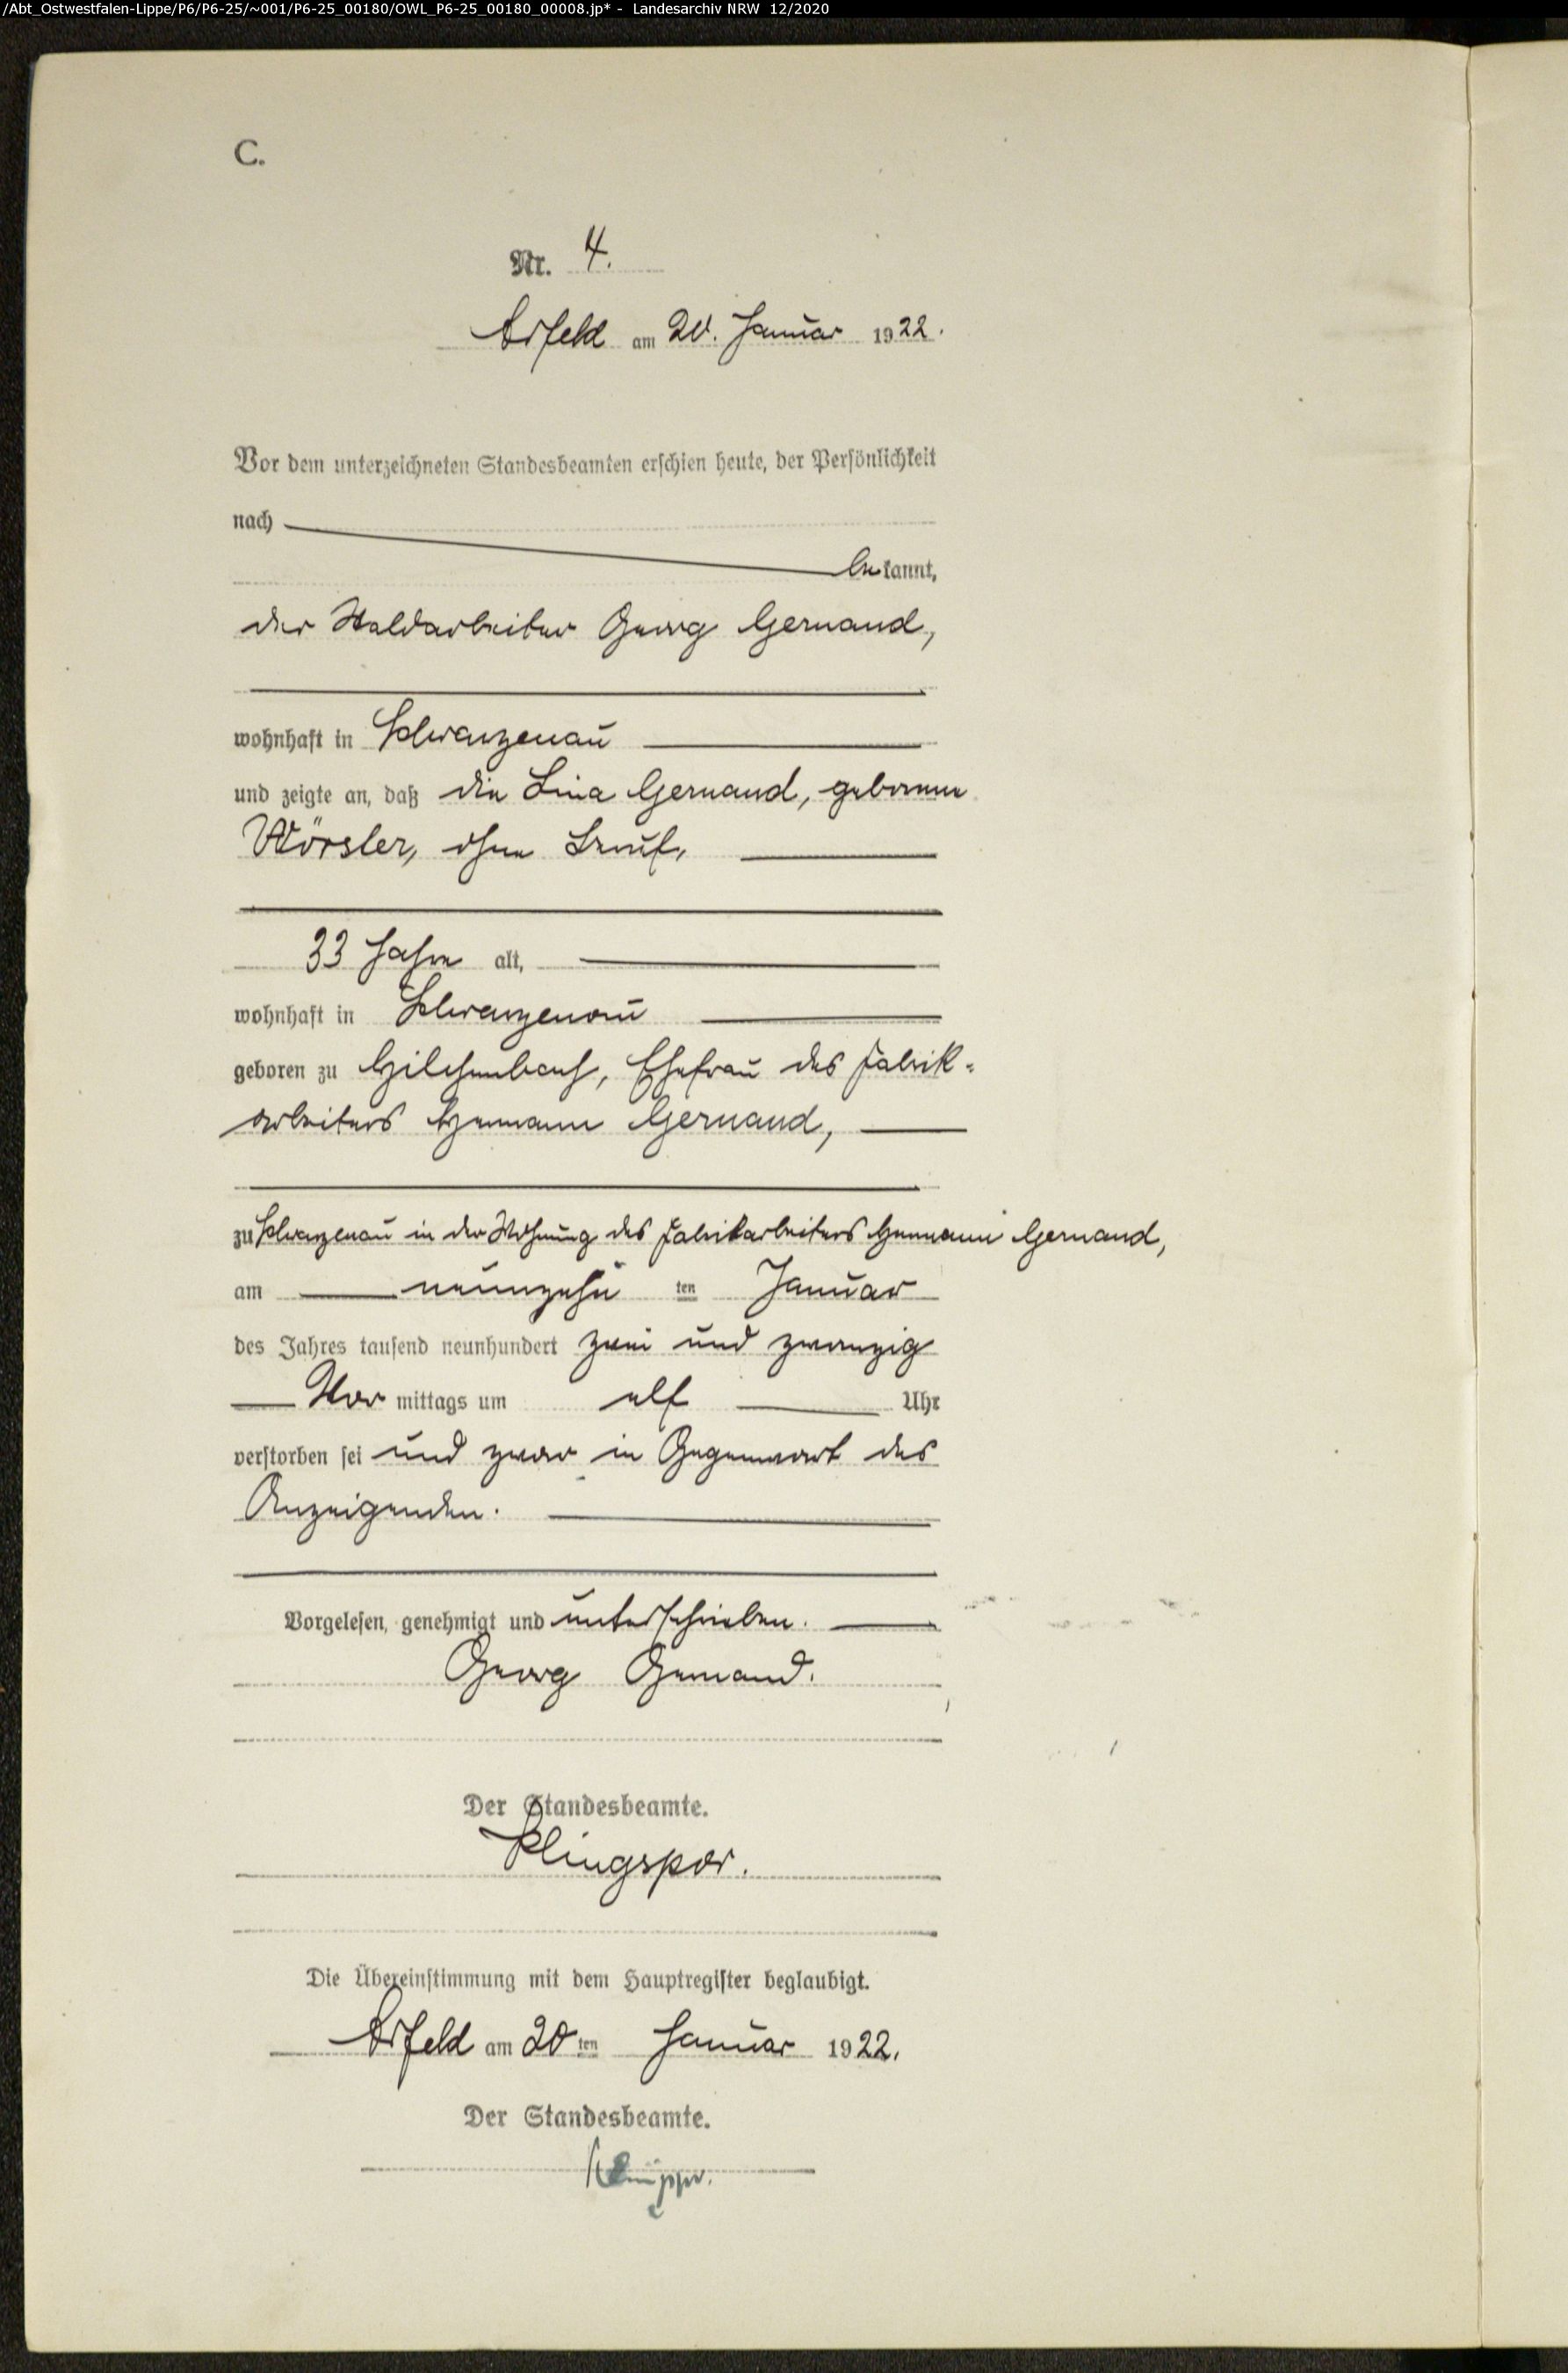 /Abt_Ostwestfalen-Lippe/P6/P6-25/~001/P6-25_00180/OWL_P6-25_00180_00008.jp* - Landesarchiv NRW 12/2020
C.
Nr. 4.
Arfeld am 20. Januar 1922.
Vor dem unterzeichneten Standesbeamten erschien heute, der Persönlichkeit
nach
bekannt,
der Waldarbeiter Georg Gernand,
wohnhaft in Schwarzenau
und zeigte an, daß die Lina Gernand, geborene
Wörsler, ohne Beruf,
33 Jahre alt,
wohnhaft in Schwarzenau
geboren zu Hilchenbach, Ehefrau des Fabrik-
arbeiters Hermann Gernand,
zu Schwarzenau in der Wohnung des Fabrikarbeiters Hermann Gernand,
am neunzehn ten Januar
des Jahres tausend neunhundert zwei und zwanzig
Vor mittags um elf Uhr
verstorben sei und zwar in Gegenwart des
Anzeigenden.
Vorgelesen, genehmigt und unterschrieben.
Georg Gernand.
Der Standesbeamte.
Klingspor.
Die Übereinstimmung mit dem Hauptregister beglaubigt.
Arfeld am 20ten Januar 1922.
Der Standesbeamte.
Klingspor.